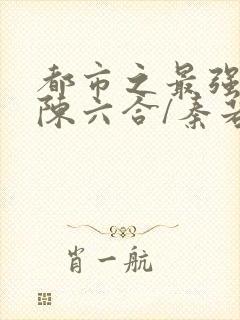 都市之最强
陈六合/秦若
肖一航